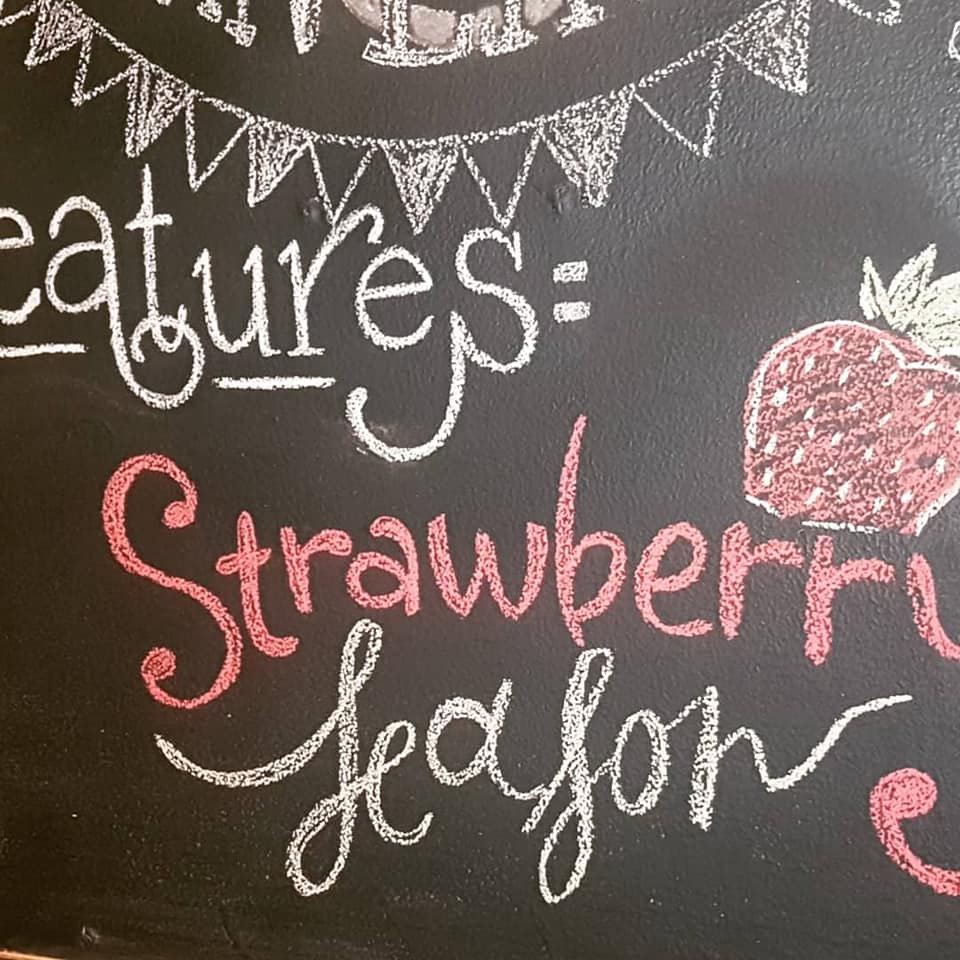 eatures:
Strawberry
Season